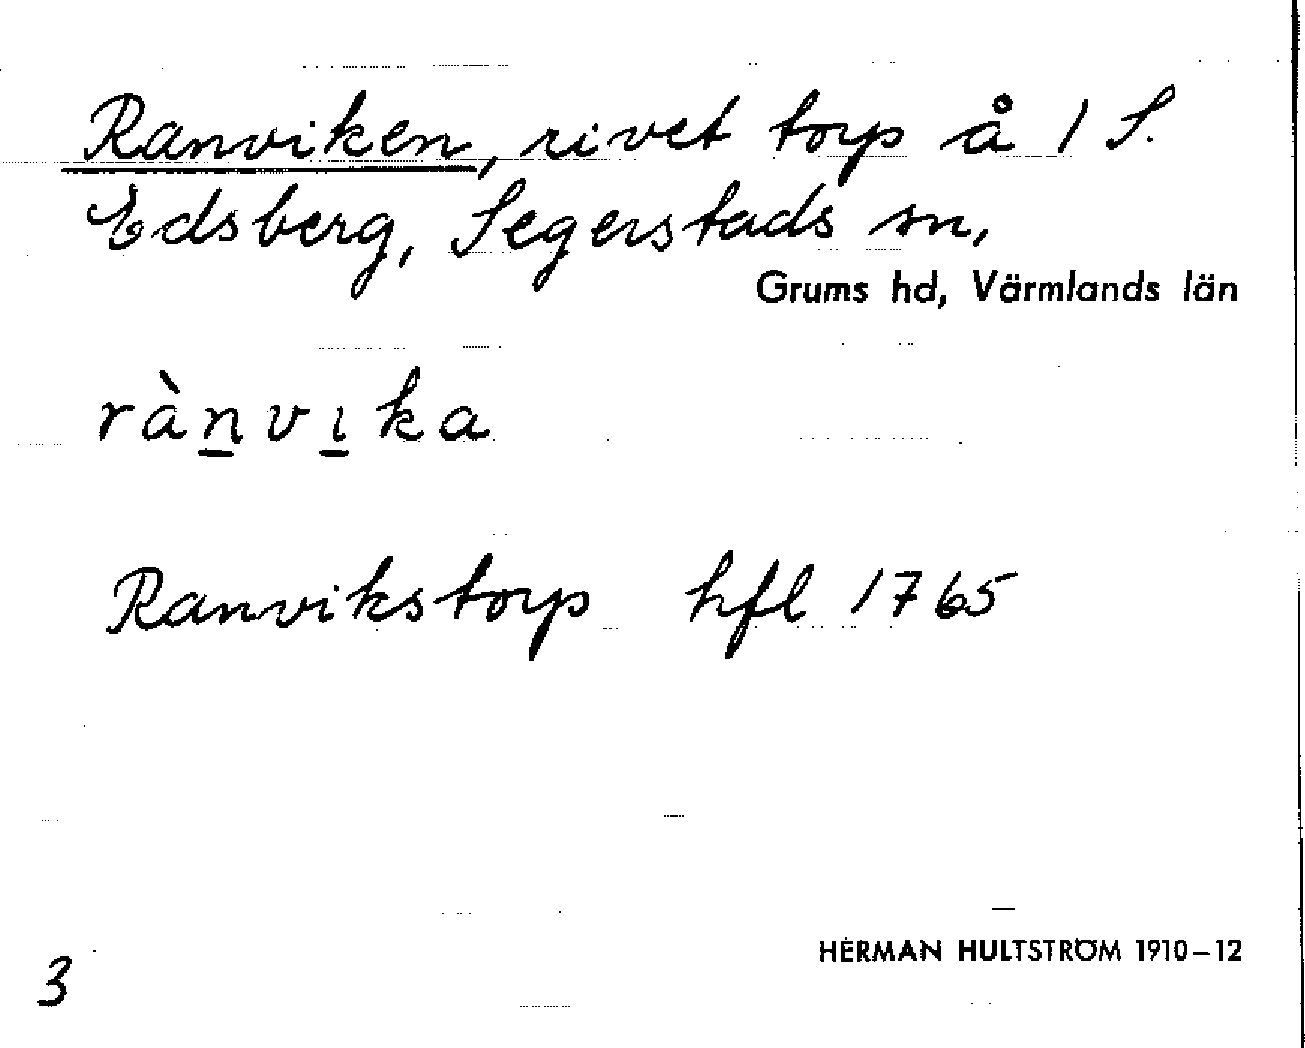 Ranviken, rivet torp å 1 S.
Edsberg, Segerstads sn,
Grums hd, Värmlands län
rànvıka
Ranvikstorp hfl 1765
HERMAN HULTSTRÖM 1910–12
3